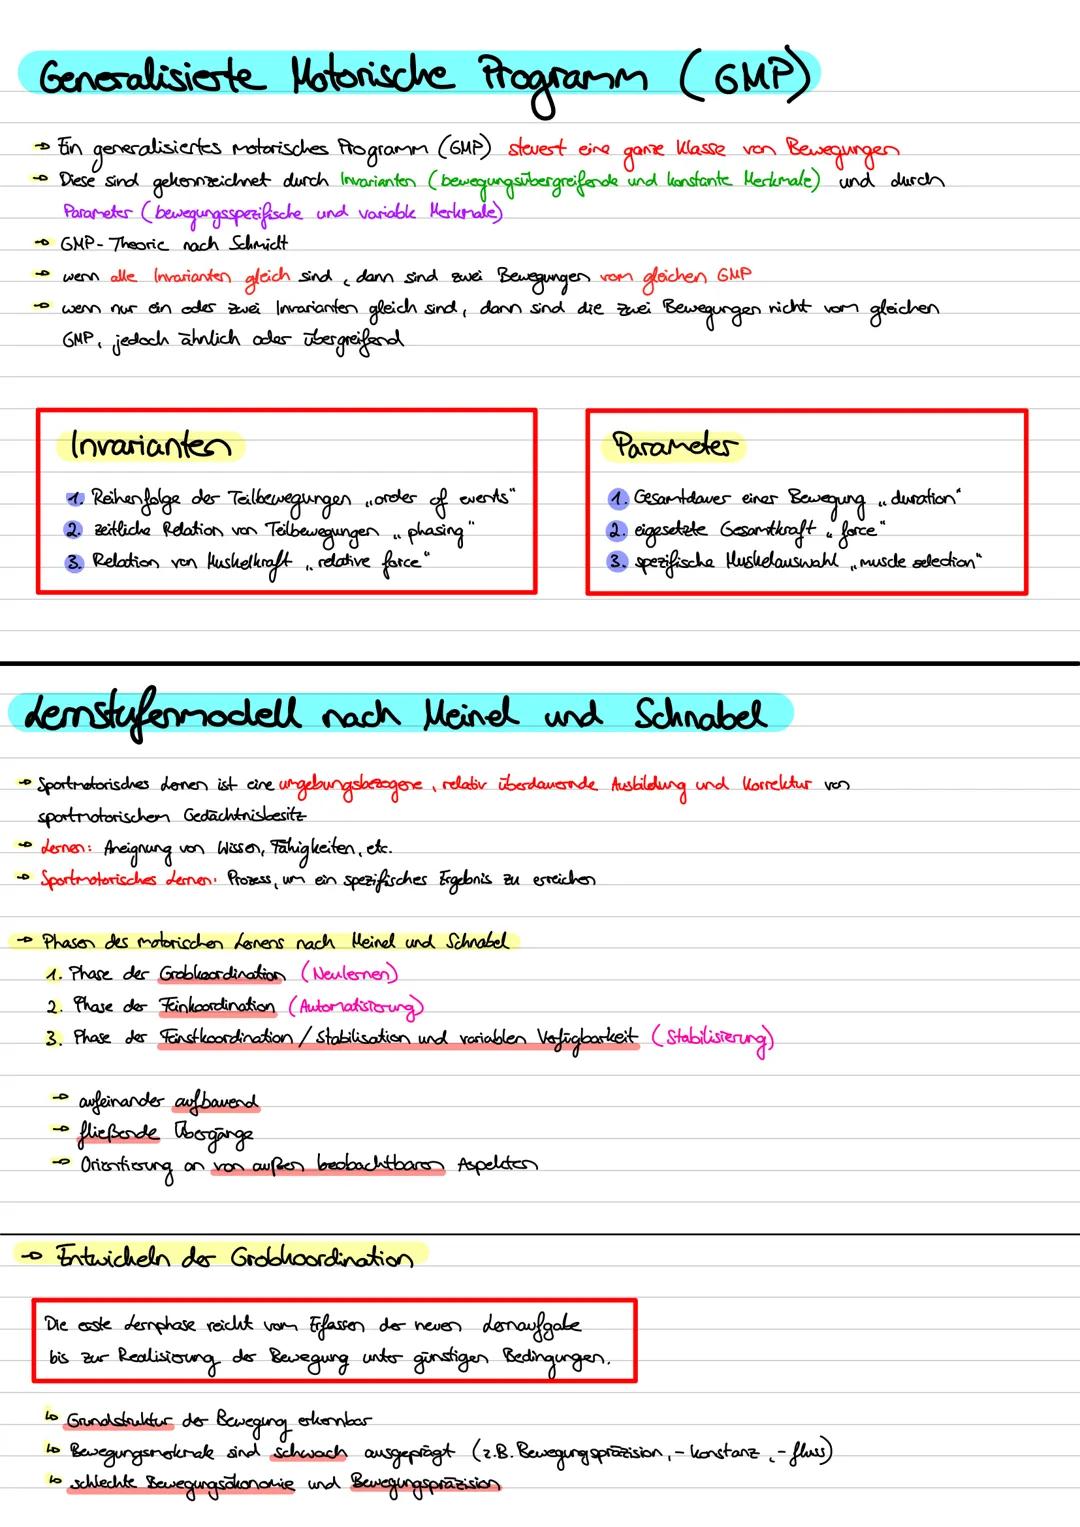 Generalisierte Motorische Programm (GMP)
→ Ein generalisiertes motorisches Programm (GMP) steuert eine ganze Klasse von Bewegungen
→ Diese sind gekennzeichnet durch Invarianten (bewegungsübergreifende und konstante Merkmale) und durch
Parameter (bewegungsspezifische und variable Merkmale)
→ GMP-Theorie nach Schmidt
→ wenn alle Invarianten gleich sind, dann sind zwei Bewegungen vom gleichen GMP
→ wenn nur ein oder zwei Invarianten gleich sind, dann sind die zwei Bewegungen nicht vom gleichen
GMP, jedoch ähnlich oder übergreifend
Invarianten
1. Reihenfolge der Teilbewegungen „order of events“
2. zeitliche Relation von Teilbewegungen „phasing“
3. Relation von Muskelkraft „relative force“
Parameter
1. Gesamtdauer einer Bewegung „duration“
2. eigesetzte Gesamtkraft „force“
3. spezifische Muskelauswahl „muscle selection“
Lernstufenmodell nach Meinel und Schnabel
→ Sportmotorisches Lernen ist eine umgebungsbezogene, relativ überdauernde Ausbildung und Korrektur von
sportmotorischem Gedächtnisbesitz
→ Lernen: Aneignung von Wissen, Fähigkeiten, etc.
→ Sportmotorisches Lernen: Prozess, um ein spezifisches Ergebnis zu erreichen
→ Phasen des motorischen Lernens nach Meinel und Schnabel
1. Phase der Grobkoordination (Neulernen)
2. Phase der Feinkoordination (Automatisierung)
3. Phase der Feinstkoordination / Stabilisation und variablen Verfügbarkeit (Stabilisierung)
→ aufeinander aufbauend
→ fließende Übergänge
→ Orientierung an von außen beobachtbaren Aspekten
→ Entwickeln der Grobkoordination
Die erste Lernphase reicht vom Erfassen der neuen Lernaufgabe
bis zur Realisierung der Bewegung unter günstigen Bedingungen.
↳ Grundstruktur der Bewegung erkennbar
↳ Bewegungsmerkmale sind schwach ausgeprägt (z.B. Bewegungspräzision, -konstanz, -fluss)
↳ schlechte Bewegungsökonomie und Bewegungspräzision